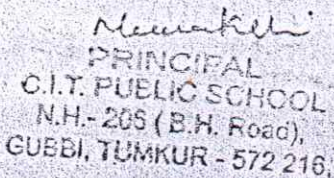 PRINCIPAL
C.I.T. PUBLIC SCHOOL
N.H.- 206 (B.H. Road),
GUBBI, TUMKUR - 572 216